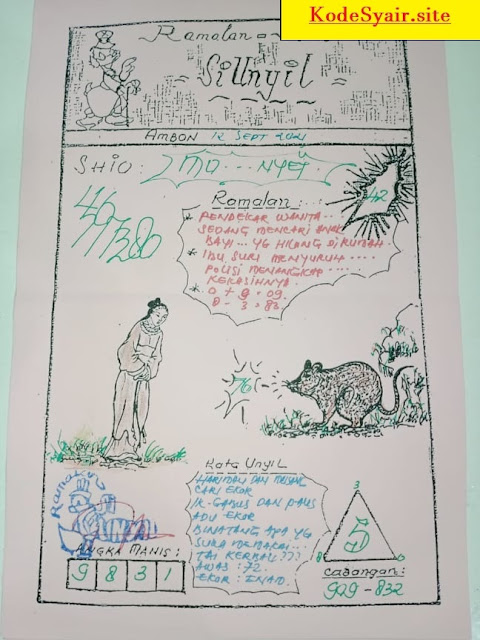 KodeSyair.site
Ramalan
Si Unyil
AMBON 12 SEPT 2021
SHIO : MO...NYET.
42
Ramalan :
* PENDEKAR WANITA...
SEDANG MENCARI ANAK
BAYI... YG HILANG DI RUMAH.
* IBU SURI MENYURUH....
POLISI MENANGKAP....
KEKASIHNYA.
* 0 + 9 = 09.
8 - 3 = 83.
76
Kata Unyil
HARIMAU DAN MUSANG
CARI EKOR
IK-GABUS DAN PAUS
ADU EKOR
BINATANG APA YG
SUKA MEMAKAI...
TAI KERBAU???
AWAS : 72.
EKOR : ENAM.
Ramalan
UNYIL
ANGKA MANIS :
9 8 3 1
3
5
8
0
CADANGAN :
929 - 832